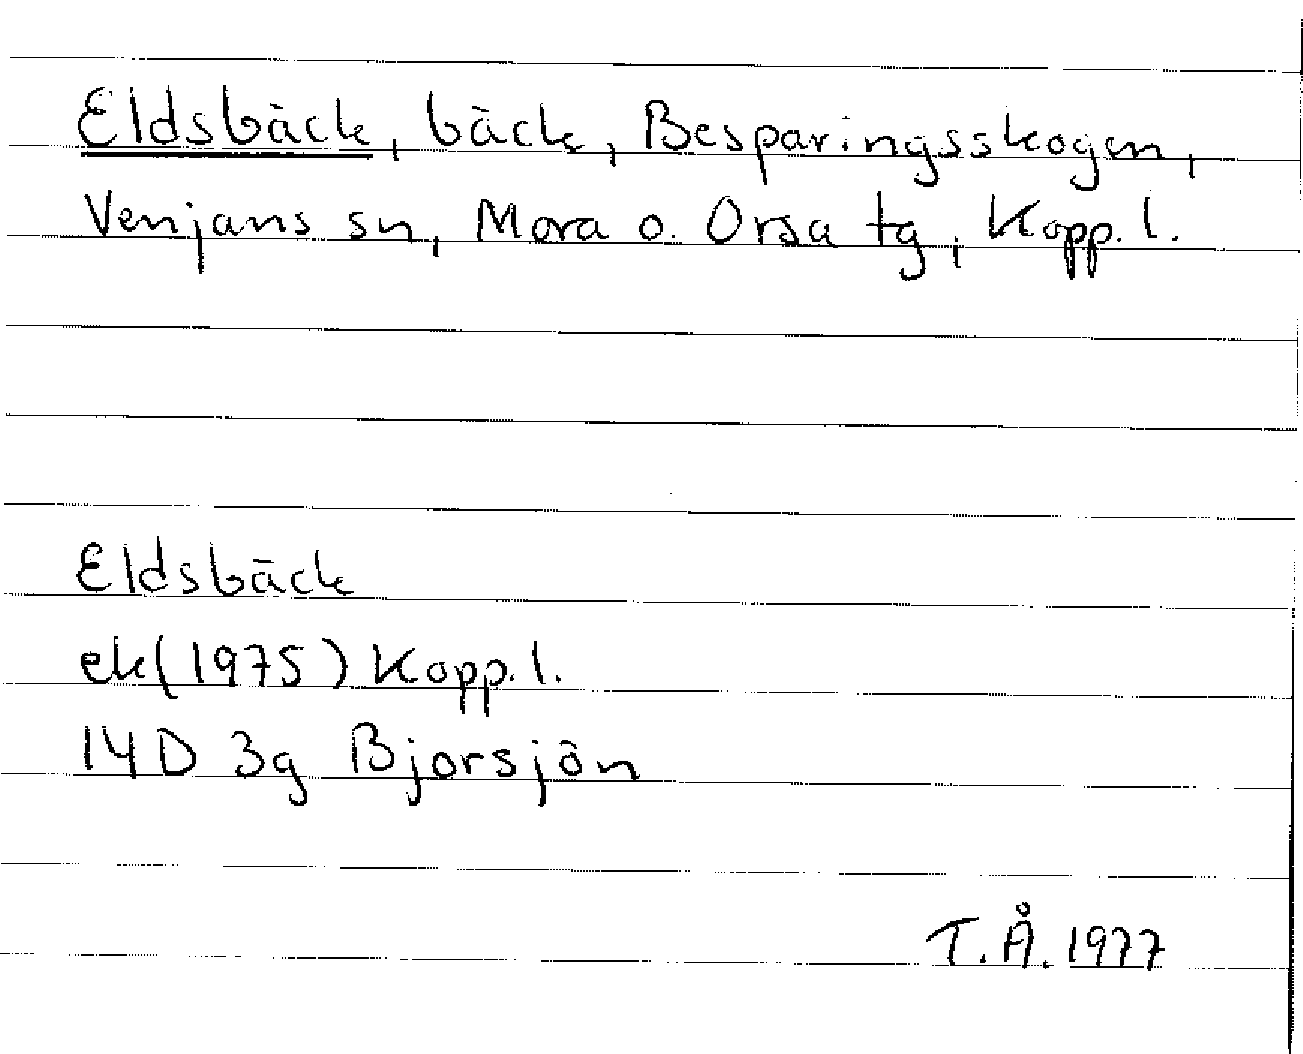 Eldsbäck, bäck, Besparingsskogen,
Venjans sn, Mora o. Orsa tg, Kopp. l.
Eldsbäck
ek(1975) Kopp. l.
14D 3g Bjorsjön
T.Å. 1977